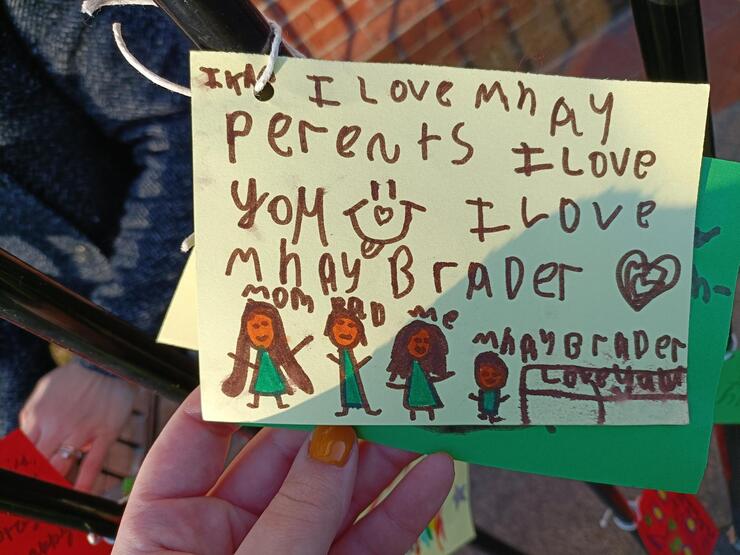 I LOVE mhAY
PerentS I LOVE
YOM I LOVE
mhAY BrADer
MOM DAD me mhAYBrADer